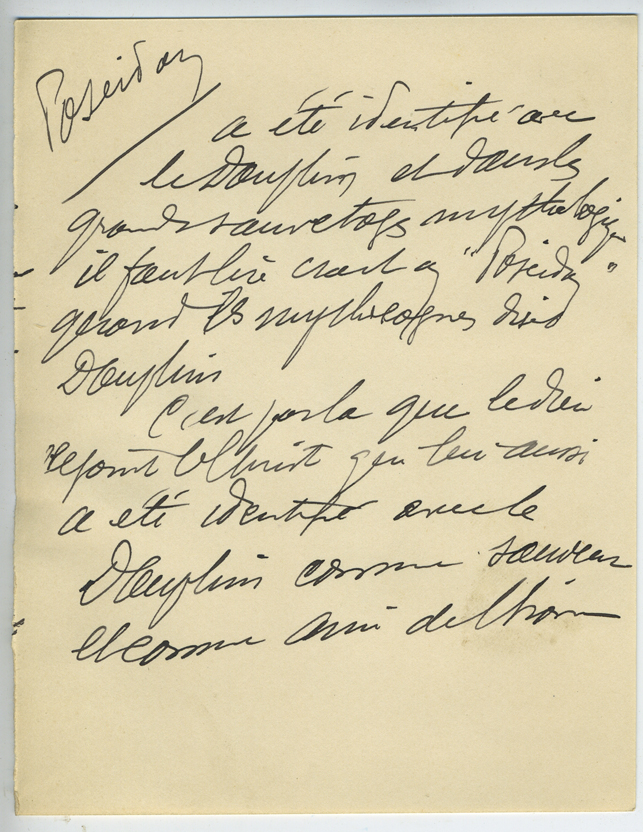 Poseidon
a été identifié avec
le Dauphin et dans les
grands sauvetages mythologiques
il faut lire "Poseidon"
quand les mythes disent
Dauphin
C'est par là que le dieu
rejoint le Christ qui lui aussi
a été identifié avec le
Dauphin comme sauveur
et comme ami de l'homme